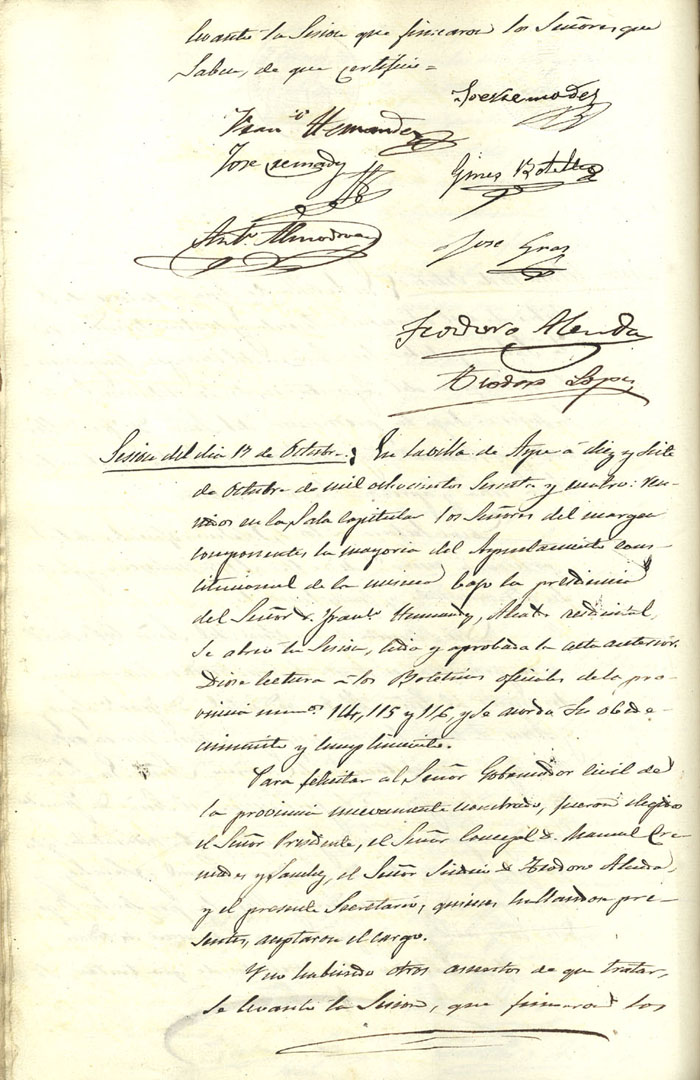 levantó la Sesion que firmaron los Señores que
saben, de que certifico =
Jose Cremades
Fran.co Hernandez
Jose Cremades
Gines Botella
Ant.o Almodovar
Jose Gras
Teodoro Alenda
Teodoro Lopez
Sesion del dia 17 de Octubre. En la villa de Aspe á diez y siete
de Octubre de mil ochocientos sesenta y cuatro: reu-
nidos en la Sala capitular los Señores del margen
componentes la mayoria del Ayuntamiento cons-
titucional de la misma bajo la presidencia
del Señor D. Fran.co Hernandez, Alcalde
se abrió la Sesion, leida y aprobada la acta anterior.
Diose lectura á los Boletines oficiales de la pro-
vincia num.os 114, 115 y 116, y se acordó su obede-
cimiento y cumplimiento.
Para felicitar al Señor Gobernador civil de
la provincia nuevamente nombrado, fueron elegidos
el Señor Presidente, el Señor Concejal D. Manuel Cre-
mades y Sanchez, el Señor Sindico D. Teodoro Alenda,
y el presente Secretario, quienes hallandose pre-
sentes, aceptaron el cargo.
Y no habiendo otros asuntos de que tratar,
se levantó la Sesion, que firmaron los